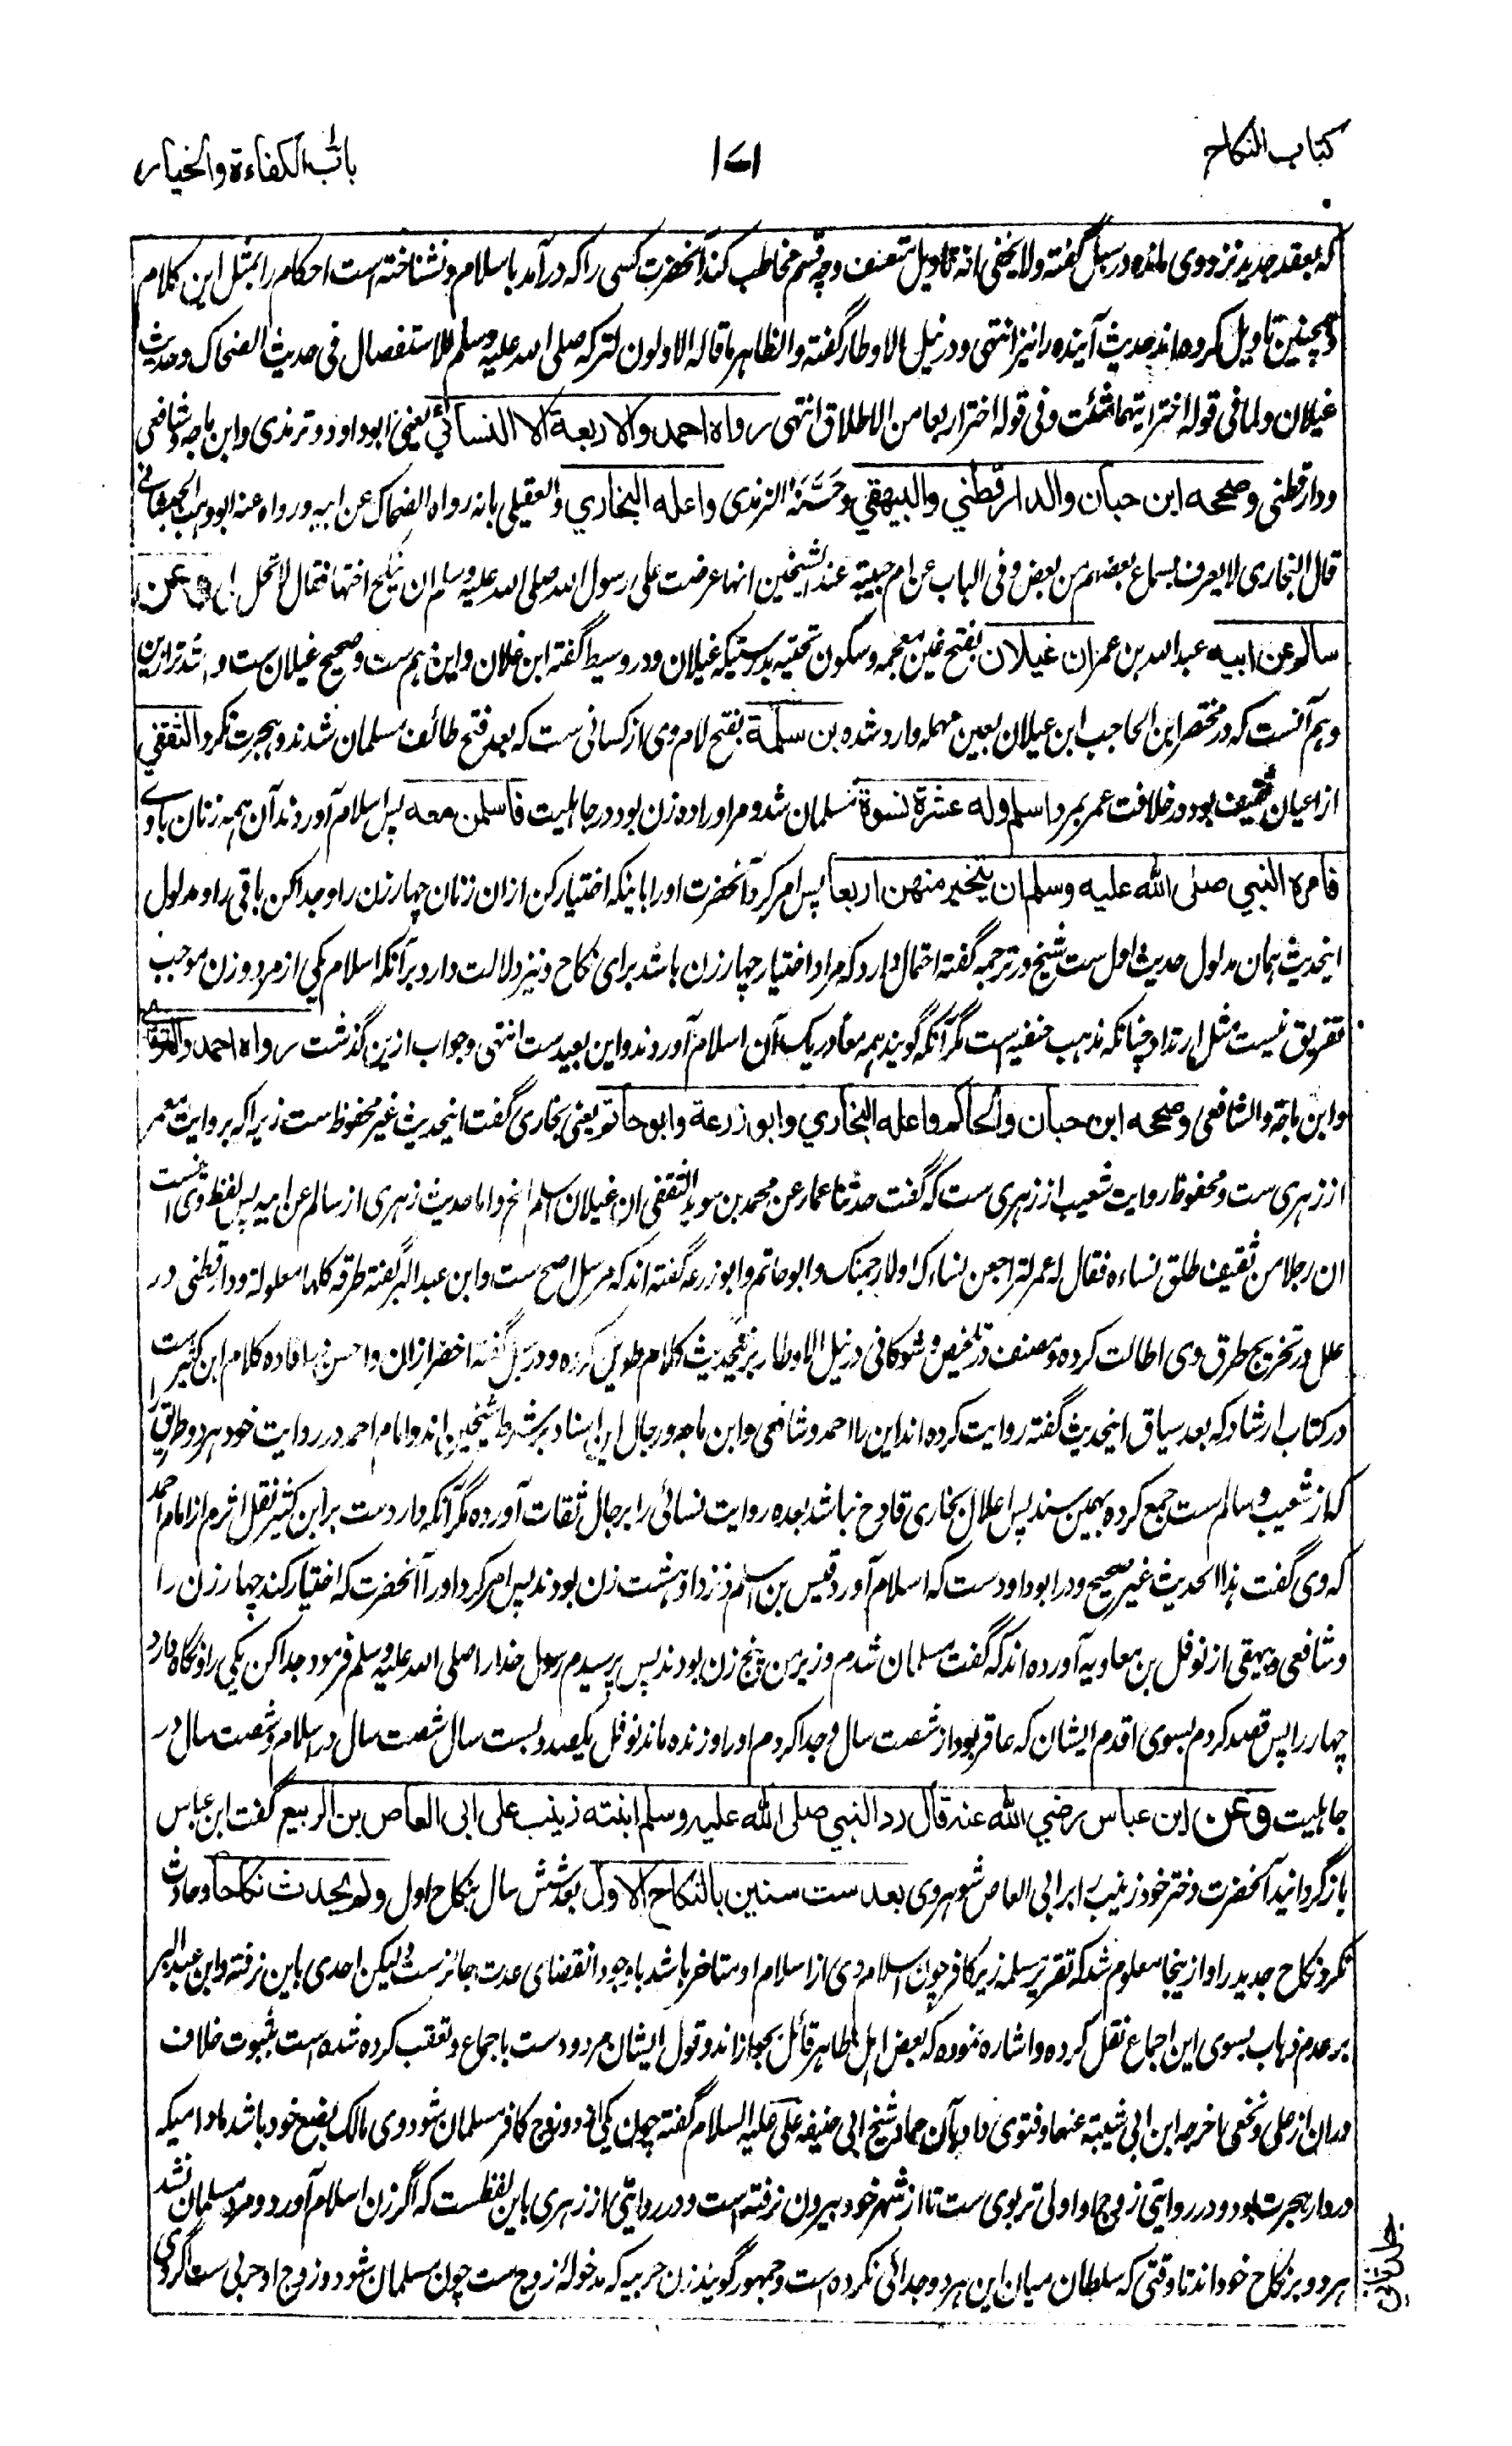 كتاب النكاح
١٧١
باب الكفاءة والخيار
که بعقد جدید نزد وی مانده در سبل گفته ولا یخفی انه تاویل متعسف وچه قسم مخاطب کند آنحضرت کسی را که در آمد باسلام ونشناخته است احکام را بمثل این کلام
وهمچنین تاویل کرده اند حدیث آینده را نیز انتهی ودر نیل الاوطار گفته والظاهر ما قاله الاولون لترکه صلی الله علیه وسلم للاستفصال فی حدیث الضحاک وحدیث
غیلان ولما فی قوله اختر ایتهما شئت وفی قوله اختر اربعا من الاطلاق انتهی رواه احمد والاربعة الا النسائي یعنی ابوداود وترمذی وابن ماجه وشافعی
ودارقطنی وصححه ابن حبان والدارقطني والبيهقي وحسنه الترمذی واعله البخاري والعقیلی بانه رواه الضحاک عن ابیه ورواه عنه ابو وهب الجیشانی
قال البخاری لا یعرف سماع بعضهم من بعض وفی الباب عن ام حبیبة عند الشیخین انها عرضت علی رسول الله صلی الله علیه وسلم ان ینکح اختها فقال لا تحل لی وعن
سالم عن ابيه عبدالله بن عمر ان غيلان بفتح غین معجمه وسکون تحتیه بدرستیکه غیلان ودر وسیط گفته ابن غلان واین وهم ست وصحیح غیلان ست و اشد تر ازین
وهم آنست که در مختصر ابن الحاجب ابن عیلان بعین مهمله وارد شده بن سلمة بفتح لام وی از کسانی ست که بعد فتح طائف مسلمان شدند وهجرت نکرد الثقفي
از اعیان ثقیف بود در خلافت عمر بمرد اسلم وله عشرة نسوة مسلمان شد ومر او را ده زن بود در جاهلیت فاسلمن معه پس اسلام آوردند آن همه زنان با وی
فامره النبي صلى الله عليه وسلم ان يتخير منهن اربعا پس امر کرد آنحضرت او را باینکه اختیار کن ازان زنان چهار زن را وجدا کن باقی را ومدلول
اینحدیث همان مدلول حدیث اول ست شیخ در ترجمه گفته احتمال دارد که مراد اختیار چهار زن باشد برای نکاح ونیز دلالت دارد برآنکه اسلام یکی از مرد وزن موجب
تفریق نیست مثل ارتداد چنانکه مذهب حنفیه است مگر آنکه گویند همه معا در یک آن اسلام آوردند واین بعید ست انتهی وجواب ازین گذشت رواه احمد والترمذي
وابن ماجة والشافعی وصححه ابن حبان والحاکم واعله البخاري وابو زرعة وابو حاتم یعنی بخاری گفت اینحدیث غیر محفوظ ست زیرا که بروایت معمر
از زهری ست ومحفوظ روایت شعیب از زهری ست که گفت حدثنا عمار عن محمد بن سوید الثقفی ان غیلان اسلم الخ واما حدیث زهری از سالم عن ابیه پس لفظ وی اینست
ان رجلا من ثقیف طلق نساءه فقال له عمر لتراجعن نساءک او لارجمنک وابو حاتم وابو زرعه گفته اند که مرسل اصح ست وابن عبدالبر گفته طرقه کلها معلولة ودارقطنی در
علل در تخریج طرق وی اطالت کرده ومصنف در تلخیص وشوکانی در نیل الاوطار برینحدیث کلام طویل کرده ودر سبل گفته اخضر ازان واحسن در افاده کلام ابن کثیر ست
در کتاب ارشاد که بعد سیاق اینحدیث گفته روایت کرده اند این را احمد وشافعی وابن ماجه ورجال این اسناد بر شرط شیخین اند وامام احمد در روایت خود هر دو طریق را
که از شعیب وسالم ست جمع کرده بهمین سند پس اعلال بخاری قادح نباشد بعده روایت نسائی را برجال ثقات آورده مگر آنکه وارد ست بر ابن کثیر نقل اثرم از امام احمد
که وی گفت هذا الحدیث غیر صحیح ودر ابوداود ست که اسلام آورد قیس بن اسلم ونزد او هشت زن بودند پس امر کرد او را آنحضرت که اختیار کند چهار زن را
وشافعی وبیهقی از نوفل بن معاویه آورده اند که گفت مسلمان شدم وزیر من پنج زن بودند پس پرسیدم رسول خدا را صلی الله علیه وسلم فرمود جدا کن یکی را ونگاه دار
چهار را پس قصد کردم بسوی اقدم ایشان که عاقر بود از شصت سال وجدا کردم او را وزنده ماند نوفل یکصد وبست سال شصت سال در اسلام وشصت سال در
جاهلیت وعن ابن عباس رضي الله عنه قال رد النبي صلى الله عليه وسلم ابنته زينب على ابى العاص بن الربيع گفت ابن عباس
باز گردانید آنحضرت دختر خود زینب را بر ابی العاص شوهر وی بعد ست سنين بالنكاح الاول بعد شش سال بنکاح اول ولم يحدث نكاحا وحادث
نکرد نکاح جدید را وازینجا معلوم شد که تقریر مسلمه زیر کافر چون اسلام وی از اسلام او متاخر باشد باوجود انقضای عدت جائز ست ولیکن احدی باین نرفته وابن عبدالبر
بر عدم ذهاب بسوی این اجماع نقل کرده واشاره نموده که بعض اهل ظاهر قائل بجواز اند وقول ایشان مردود ست باجماع وتعقب کرده شده است بثبوت خلاف
دران از علی ونخعی اخرجه ابن ابی شیبة عنهما وفتوی داد بآن حماد شیخ ابی حنیفه علی علیه السلام گفته چون یکی از دو زوج کافر مسلمان شود وی مالک بضع خود باشد مادامیکه
در دار هجرت بود ودر روایتی زوجها او اولی تر بوی ست تا از شهر خود بیرون نرفته است ودر روایتی از زهری باین لفظ ست که اگر زن اسلام آورد ومرد مسلمان نشد
هر دو بر نکاح خود اند تا وقتی که سلطان میان این هر دو جدائی نکرده است وجمهور گویند زن حربیه که مدخوله زوج ست چون مسلمان شود وزوج او حربی ست اگر وی
جلد ثانی